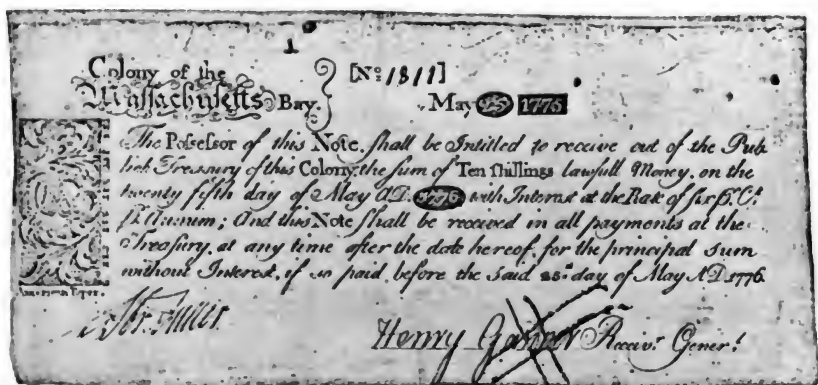 1
Colony of the
Massachusetts Bay. } [No. 1811]
May 25 1775
The Possessor of this Note, shall be Intitled to receive out of the Pub
lick Treasury of this Colony, the sum of Ten shillings lawfull Money, on the
twenty fifth day of May A.D. 1776 with Interest at the Rate of six pr. Ct.
pr. Annum; And this Note shall be received in all payments at the
Treasury, at any time after the date hereof, for the principal sum
without Interest, if so paid, before the said 25th day of May A.D. 1776.
American Paper.
Henry Gardner Receivr. Generl.